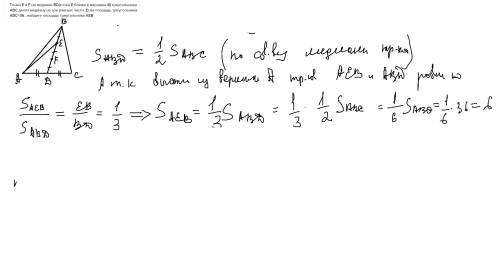 Точки E и F на медиане BD(точка E ближе к вершине B) треугольника
ABC делят медиану на три равные части. Если площадь треугольника
ABC=36 , найдите площадь треугольника AEB
B
E
F
A D C
S_ABD = 1/2 S_ABC (по св-ву медианы тр-ка)
А т.к высоты из вершины A тр-ов AEB и ABD равны то
S_AEB/S_ABD = EB/BD = 1/3 ⟹ S_AEB = 1/3 S_ABD = 1/3 · 1/2 S_ABC = 1/6 S_ABD = 1/6 · 36 = 6